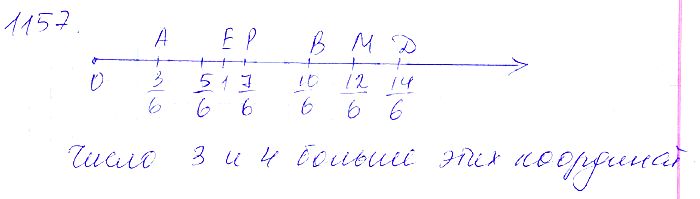 1157.
A E P B M D
0 3/6 5/6 1 7/6 10/6 12/6 14/6
Число 3 и 4 больше этих координат